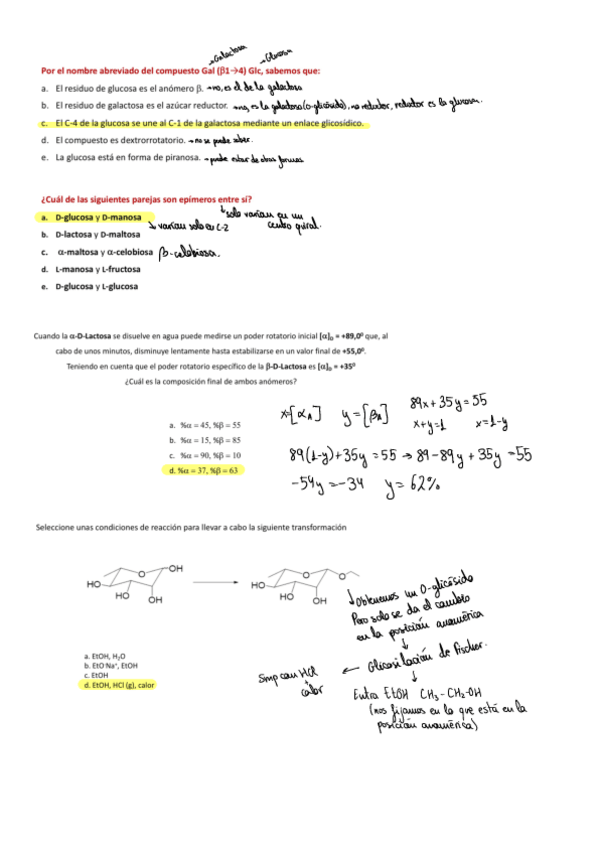 →Galactosa →Glucosa
Por el nombre abreviado del compuesto Gal (β1→4) Glc, sabemos que:
a. El residuo de glucosa es el anómero β. →no, es el de la galactosa
b. El residuo de galactosa es el azúcar reductor. →no, es la galactosa (o-glicósido), no reductor, reductor es la glucosa.
c. El C-4 de la glucosa se une al C-1 de la galactosa mediante un enlace glicosídico.
d. El compuesto es dextrorrotatorio. →no se puede saber.
e. La glucosa está en forma de piranosa. →puede estar de otras formas
¿Cuál de las siguientes parejas son epímeros entre sí?
↓ solo varían en un
centro quiral.
a. D-glucosa y D-manosa
↳ varían solo en C-2
b. D-lactosa y D-maltosa
c. α-maltosa y α-celobiosa β-celobiosa.
d. L-manosa y L-fructosa
e. D-glucosa y L-glucosa
Cuando la α-D-Lactosa se disuelve en agua puede medirse un poder rotatorio inicial [α]D = +89,0º que, al
cabo de unos minutos, disminuye lentamente hasta estabilizarse en un valor final de +55,0º.
Teniendo en cuenta que el poder rotatorio específico de la β-D-Lactosa es [α]D = +35º
¿Cuál es la composición final de ambos anómeros?
a. %α = 45, %β = 55
b. %α = 15, %β = 85
c. %α = 90, %β = 10
d. %α = 37, %β = 63
x=[αA] y=[βA] 89x + 35y = 55
x+y=1 x=1-y
89(1-y)+35y = 55 → 89-89y + 35y = 55
-54y = -34 y = 62%
Seleccione unas condiciones de reacción para llevar a cabo la siguiente transformación
O OH HO HO OH
O O HO HO OH
↓ obtenemos un O-glicósido
Pero solo se da el cambio
en la posición anomérica
↓
← Glicosilación de Fischer.
Simp con HCl
+
calor
↓
Entra EtOH CH3-CH2-OH
(nos fijamos en lo que está en la
posición anomérica)
a. EtOH, H2O
b. EtO⁻Na⁺, EtOH
c. EtOH
d. EtOH, HCl (g), calor